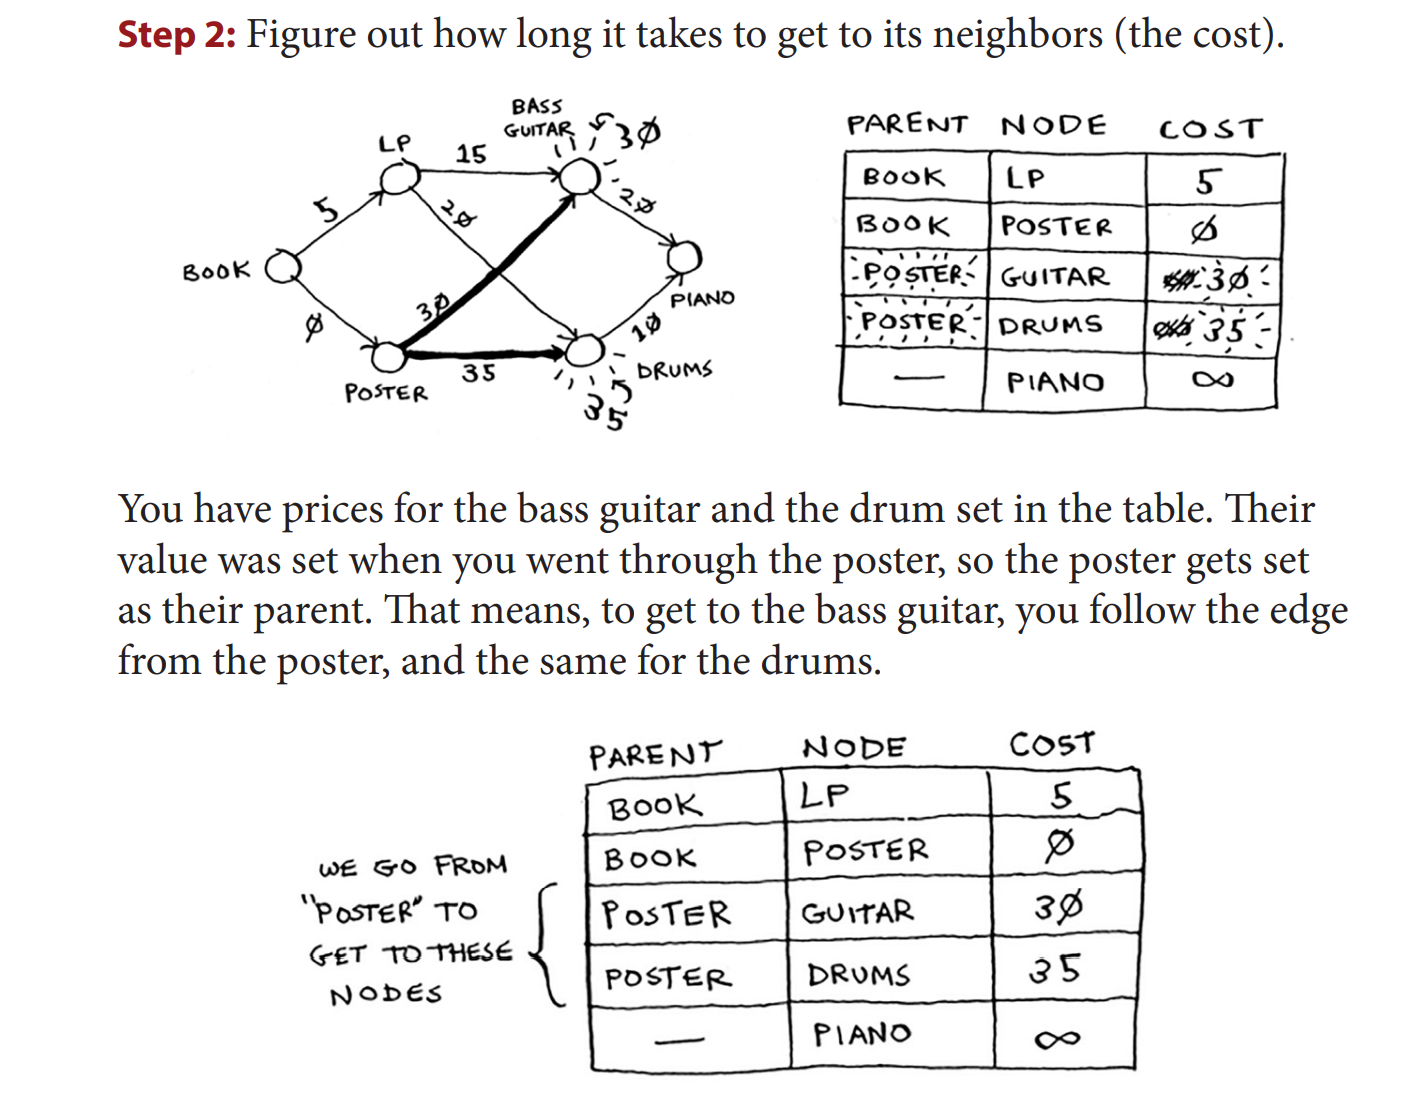 Step 2: Figure out how long it takes to get to its neighbors (the cost).
BASS
GUITAR
3Ø
LP
15
2Ø
5
2Ø
BOOK
PIANO
3Ø
Ø
1Ø
35
DRUMS
POSTER
35
PARENT NODE COST
BOOK LP 5
BOOK POSTER Ø
POSTER GUITAR 3Ø
POSTER DRUMS 35
— PIANO ∞
You have prices for the bass guitar and the drum set in the table. Their
value was set when you went through the poster, so the poster gets set
as their parent. That means, to get to the bass guitar, you follow the edge
from the poster, and the same for the drums.
WE GO FROM
"POSTER" TO
GET TO THESE
NODES
PARENT NODE COST
BOOK LP 5
BOOK POSTER Ø
POSTER GUITAR 3Ø
POSTER DRUMS 35
— PIANO ∞